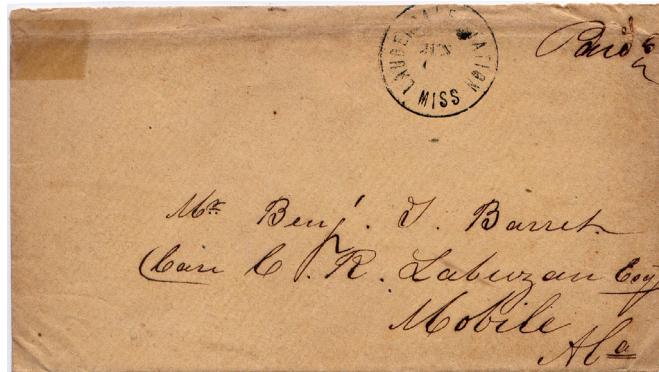 LAUDERDALE STATION
JUN
MISS
Paid
Mr. Benj. T. Barret
Care C. R. Labuzan Esq
Mobile
Ala